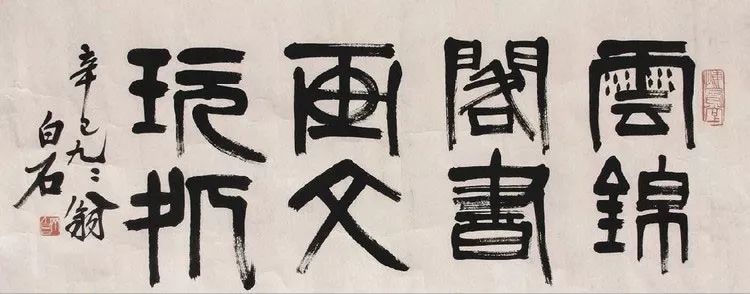 雲錦
閣書
画文
玩所
辛巳九二翁
白石